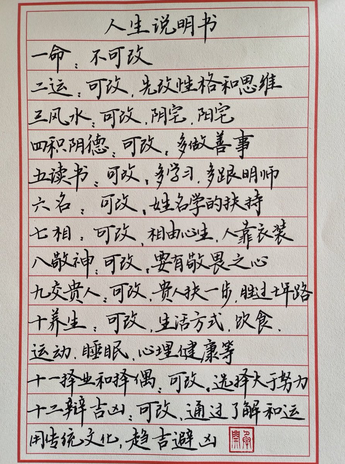 人生说明书
一命：不可改
二运：可改，先改性格和思维
三风水：可改，阴宅，阳宅
四积阴德：可改，多做善事
五读书：可改，多学习，多跟明师
六名：可改，姓名学的扶持
七相：可改，相由心生，人靠衣装
八敬神：可改，要有敬畏之心
九交贵人：可改，贵人扶一步，胜过十年路
十养生：可改，生活方式，饮食，
运动，睡眠，心理健康等
十一择业和择偶：可改，选择大于努力
十二辩吉凶：可改，通过了解和运
用传统文化，趋吉避凶